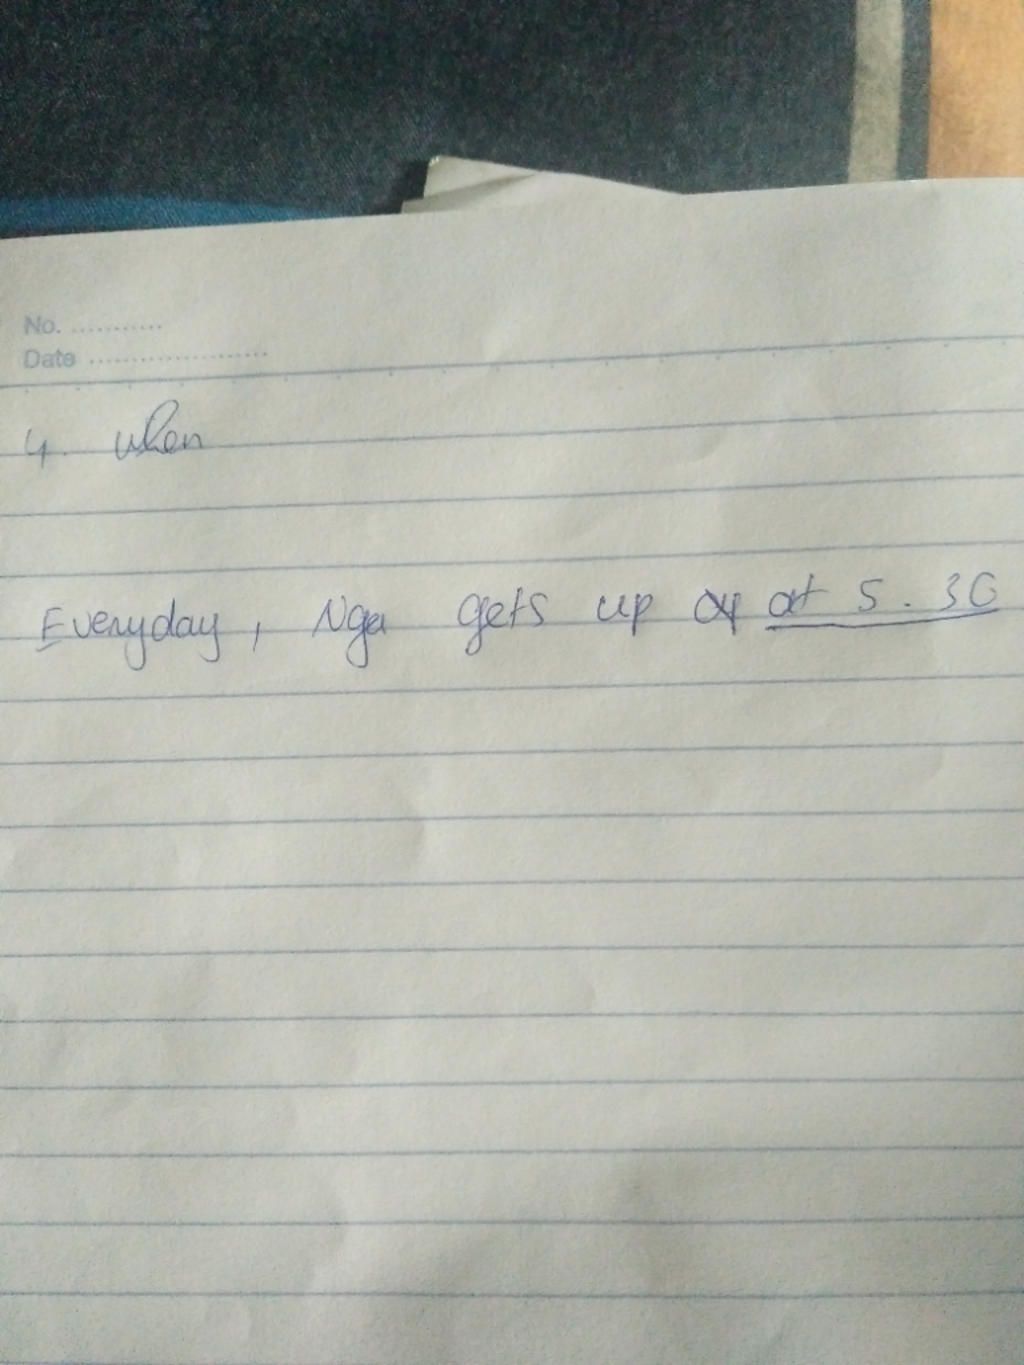 No. ...........
Date ....................
4. When
Everyday, Nga gets up at 5.30